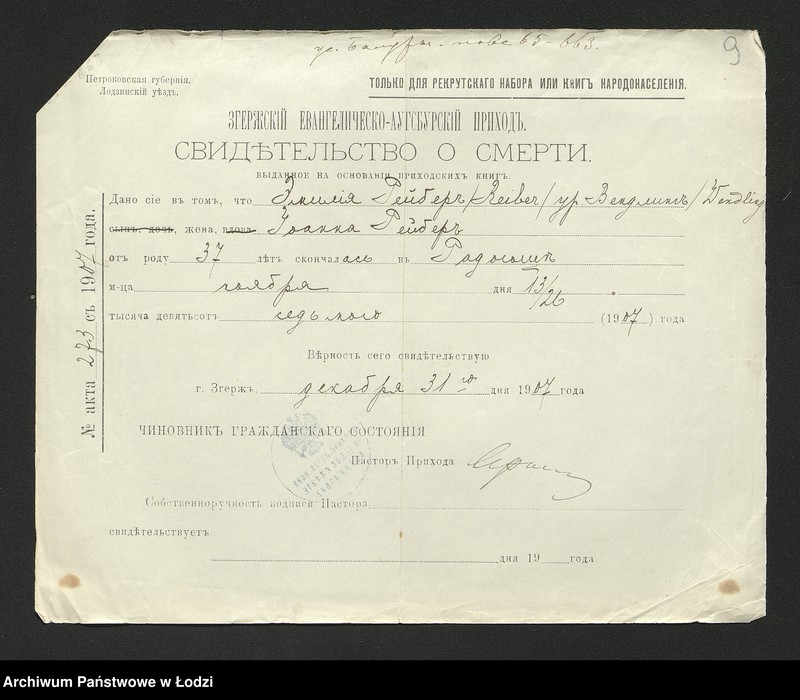 9
Петроковская губернія.
Лодзинскій уѣздъ.
ТОЛЬКО ДЛЯ РЕКРУТСКАГО НАБОРА ИЛИ КНИГЪ НАРОДОНАСЕЛЕНІЯ.
ЗГЕРЖСКІЙ ЕВАНГЕЛИЧЕСКО-АУГСБУРСКІЙ ПРИХОДЪ.
СВИДѢТЕЛЬСТВО О СМЕРТИ.
ВЫДАННОЕ НА ОСНОВАНІИ ПРИХОДСКИХЪ КНИГЪ.
Дано сіе въ томъ, что Эмилія Рейберъ /Reiber/ ур Вендлингъ /Wendling
сынъ, дочь, жена, вдова Іоанна Рейберъ
отъ роду 37 лѣтъ скончалась въ Радогощъ
м-ца ноября дня 13/26
тысяча девятьсотъ седьмого (1907) года
Вѣрность сего свидѣтельствую
г. Згержъ, декабря 31 го дня 1907 года
ЧИНОВНИКЪ ГРАЖДАНСКАГО СОСТОЯНІЯ
Пасторъ Прихода
Собственноручность подписи Пастора
свидѣтельствуетъ
дня 19 года
№ акта 273 съ 1907 года.
Archiwum Państwowe w Łodzi